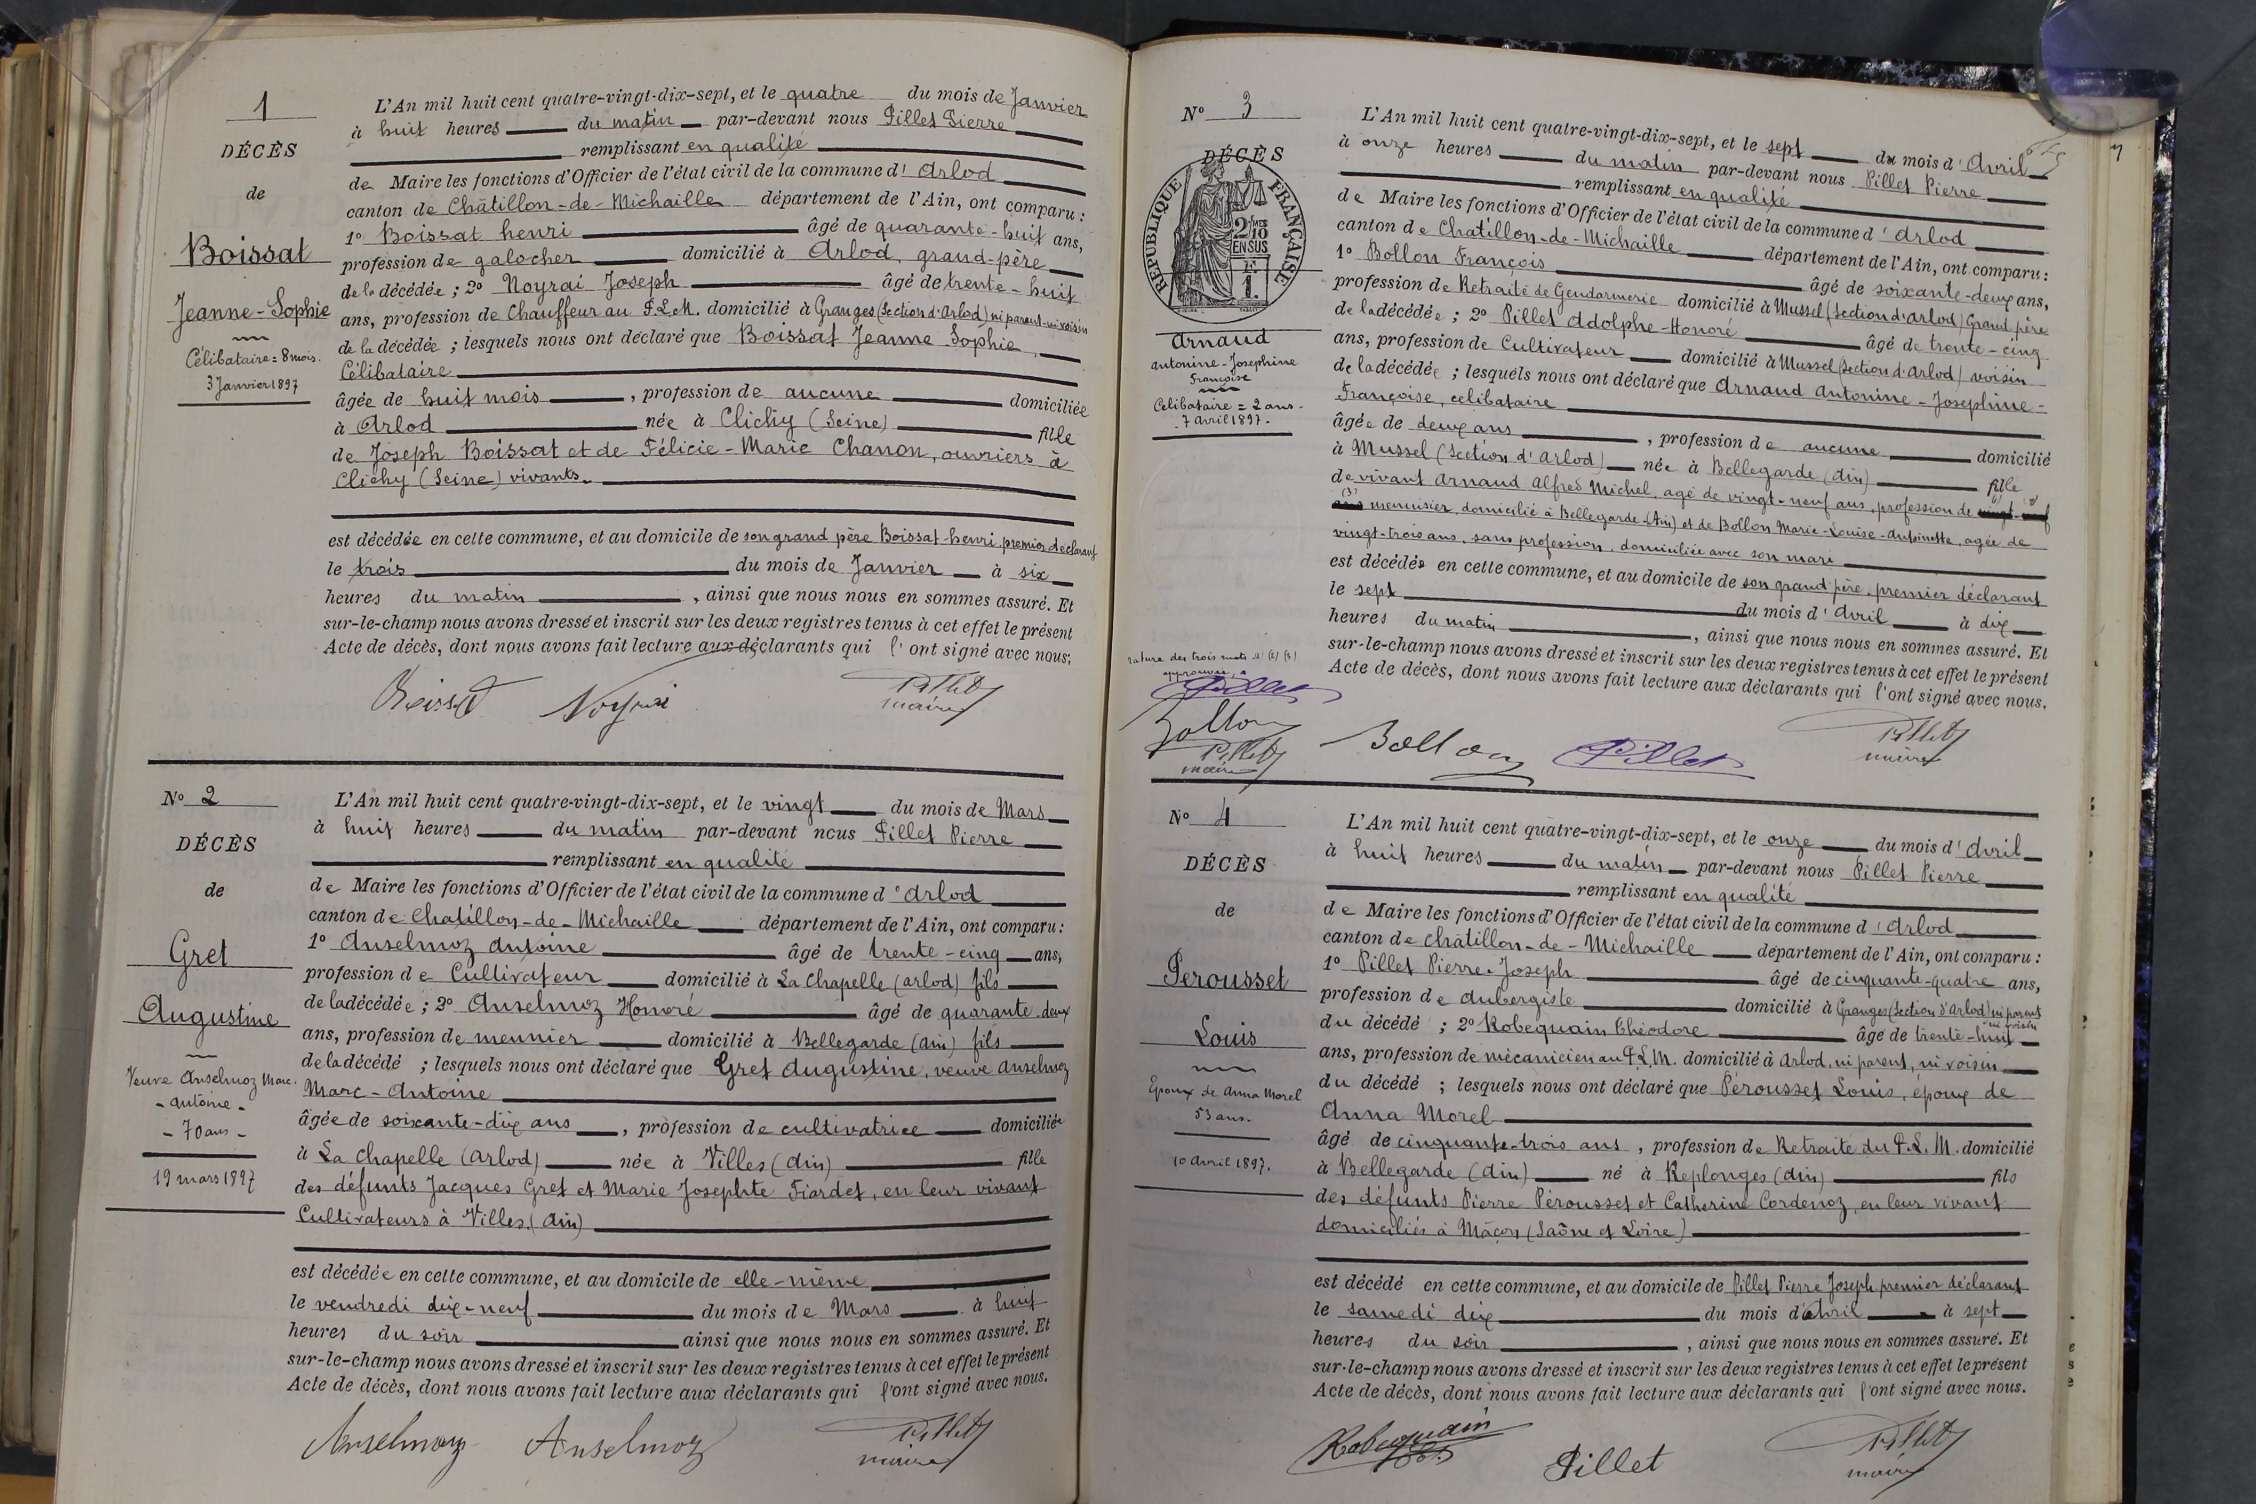 1
DÉCÈS
de
Boissat
Jeanne-Sophie
Célibataire = 8 mois.
3 Janvier 1897
L'An mil huit cent quatre-vingt-dix-sept, et le quatre du mois de Janvier
à huit heures du matin par-devant nous Pillet Pierre
remplissant en qualité
de Maire les fonctions d'Officier de l'état civil de la commune d' Arlod
canton de Châtillon-de-Michaille département de l'Ain, ont comparu :
1° Boissat henri âgé de quarante-huit ans,
profession de galocher domicilié à Arlod, grand-père
de la décédée ; 2° Noyrai Joseph âgé de trente-huit
ans, profession de Chauffeur au P.L.M. domicilié à Granges (Section d'Arlod) ni parent ni voisin
de la décédée ; lesquels nous ont déclaré que Boissat Jeanne Sophie,
Célibataire
âgée de huit mois, profession de aucune domiciliée
à Arlod née à Clichy (Seine) fille
de Joseph Boissat et de Félicie-Marie Chanon, ouvriers à
Clichy (Seine) vivants.
est décédée en cette commune, et au domicile de son grand père Boissat henri, premier déclarant
le trois du mois de Janvier à six
heures du matin, ainsi que nous nous en sommes assuré. Et
sur-le-champ nous avons dressé et inscrit sur les deux registres tenus à cet effet le présent
Acte de décès, dont nous avons fait lecture aux déclarants qui l'ont signé avec nous.
Boissat Noyrai Pillet
maire
N° 2
DÉCÈS
de
Gret
Augustine
Veuve Anselmoz Marc.
- Antoine -
- 70 ans -
19 mars 1897
L'An mil huit cent quatre-vingt-dix-sept, et le vingt du mois de Mars
à huit heures du matin par-devant nous Pillet Pierre
remplissant en qualité
de Maire les fonctions d'Officier de l'état civil de la commune d' Arlod
canton de Chatillon-de-Michaille département de l'Ain, ont comparu :
1° Anselmoz Antoine âgé de trente-cinq ans,
profession de Cultivateur domicilié à La Chapelle (Arlod) fils
de la décédée ; 2° Anselmoz Honoré âgé de quarante-deux
ans, profession de meunier domicilié à Bellegarde (Ain) fils
de la décédé ; lesquels nous ont déclaré que Gret Augustine, veuve Anselmoz
Marc-Antoine
âgée de soixante-dix ans, profession de cultivatrice domiciliée
à La Chapelle (Arlod) née à Villes (Ain) fille
des défunts Jacques Gret et Marie Josephte Fiardet, en leur vivant
Cultivateurs à Villes (Ain)
est décédée en cette commune, et au domicile de elle-même
le vendredi dix-neuf du mois de Mars à huit
heures du soir ainsi que nous nous en sommes assuré. Et
sur-le-champ nous avons dressé et inscrit sur les deux registres tenus à cet effet le présent
Acte de décès, dont nous avons fait lecture aux déclarants qui l'ont signé avec nous.
Anselmoz Anselmoz Pillet
maire
7
N° 3
DÉCÈS
REPUBLIQUE FRANÇAISE
2/10 EN SUS
1.
Arnaud
Antonine-Josephine
Françoise
Celibataire = 2 ans -
- 7 avril 1897 -
L'An mil huit cent quatre-vingt-dix-sept, et le sept du mois d'Avril
à onze heures du matin par-devant nous Pillet Pierre
remplissant en qualité
de Maire les fonctions d'Officier de l'état civil de la commune d' Arlod
canton de Chatillon-de-Michaille département de l'Ain, ont comparu :
1° Bollon François âgé de soixante-deux ans,
profession de Retraité de Gendarmerie domicilié à Mussel (Section d'Arlod) Grand père
de la décédée ; 2° Pillet Adolphe-Honoré âgé de trente-cinq
ans, profession de Cultivateur domicilié à Mussel (Section d'Arlod) voisin
de la décédée ; lesquels nous ont déclaré que Arnaud Antonine-Josephine-
Françoise, celibataire
âgée de deux ans, profession de aucune domicilié
à Mussel (Section d'Arlod) née à Bellegarde (Ain) fille
de vivant Arnaud Alfred Michel, agé de vingt-neuf ans, profession de
menuisier, domicilié à Bellegarde (Ain) et de Bollon Marie-Louise-Antoinette, agée de
vingt-trois ans, sans profession, domiciliée avec son mari
est décédée en cette commune, et au domicile de son grand père, premier déclarant
le sept du mois d'Avril à dix
heures du matin, ainsi que nous nous en sommes assuré. Et
sur-le-champ nous avons dressé et inscrit sur les deux registres tenus à cet effet le présent
Acte de décès, dont nous avons fait lecture aux déclarants qui l'ont signé avec nous.
rature des trois mots (1) (2) (3)
approuvée
Pillet
Bollon
Pillet
maire
Bollon Pillet Pillet
maire
N° 4
DÉCÈS
de
Perousset
Louis
Époux de Anna Morel
53 ans.
10 avril 1897.
L'An mil huit cent quatre-vingt-dix-sept, et le onze du mois d'Avril
à huit heures du matin par-devant nous Pillet Pierre
remplissant en qualité
de Maire les fonctions d'Officier de l'état civil de la commune d' Arlod
canton de Châtillon-de-Michaille département de l'Ain, ont comparu :
1° Pillet Pierre-Joseph âgé de cinquante-quatre ans,
profession de Aubergiste domicilié à Granges (Section d'Arlod) ni parent ni voisin
du décédé ; 2° Robequain Théodore âgé de trente-huit
ans, profession de mécanicien au P.L.M. domicilié à Arlod, ni parent, ni voisin
du décédé ; lesquels nous ont déclaré que Pérousset Louis, époux de
Anna Morel
âgé de cinquante-trois ans, profession de Retraité du P.L.M. domicilié
à Bellegarde (Ain) né à Replonges (Ain) fils
des défunts Pierre Pérousset et Catherine Cordenoz, en leur vivant
domiciliés à Mâcon (Saône et Loire)
est décédé en cette commune, et au domicile de Pillet Pierre Joseph premier déclarant
le samedi dix du mois d'Avril à sept
heures du soir, ainsi que nous nous en sommes assuré. Et
sur-le-champ nous avons dressé et inscrit sur les deux registres tenus à cet effet le présent
Acte de décès, dont nous avons fait lecture aux déclarants qui l'ont signé avec nous.
Robequain Pillet Pillet
maire